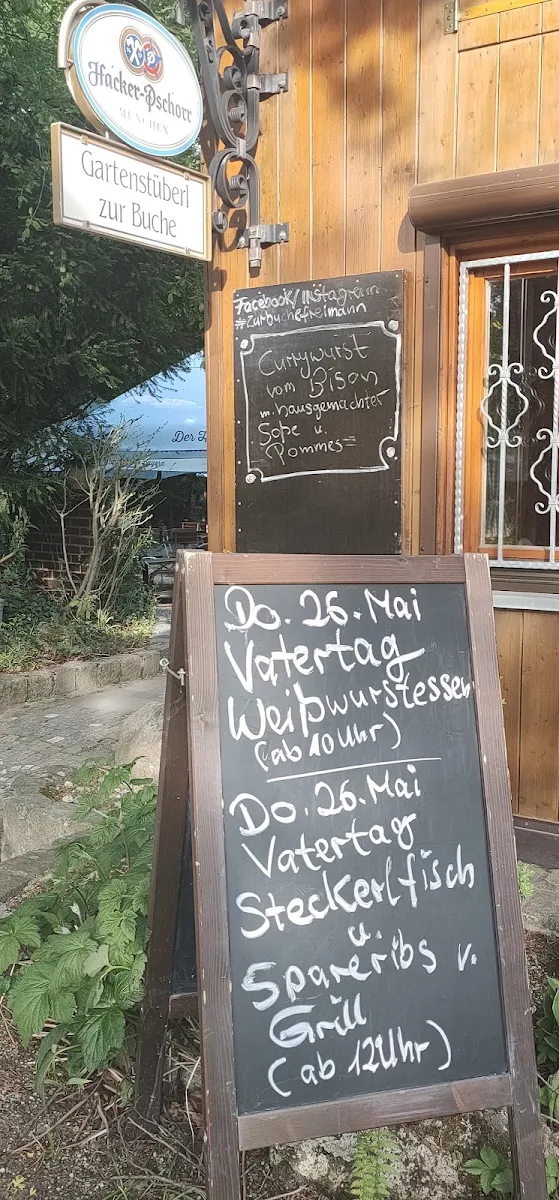 Hacker-Pschorr
MÜNCHEN
Gartenstüberl
zur Buche
Facebook/Instagram
#zurbuchefreimann
Currywurst
vom Bison
m. hausgemachter
Soße u.
Pommes
Der H
Do. 26. Mai
Vatertag
Weißwurstessen
(ab 10 Uhr)
Do. 26. Mai
Vatertag
Steckerlfisch
u.
Spareribs v.
Grill
(ab 12 Uhr)